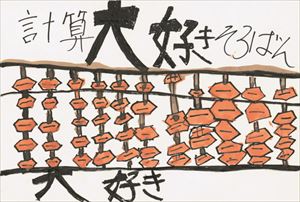 計算大好きそろばん
大好き